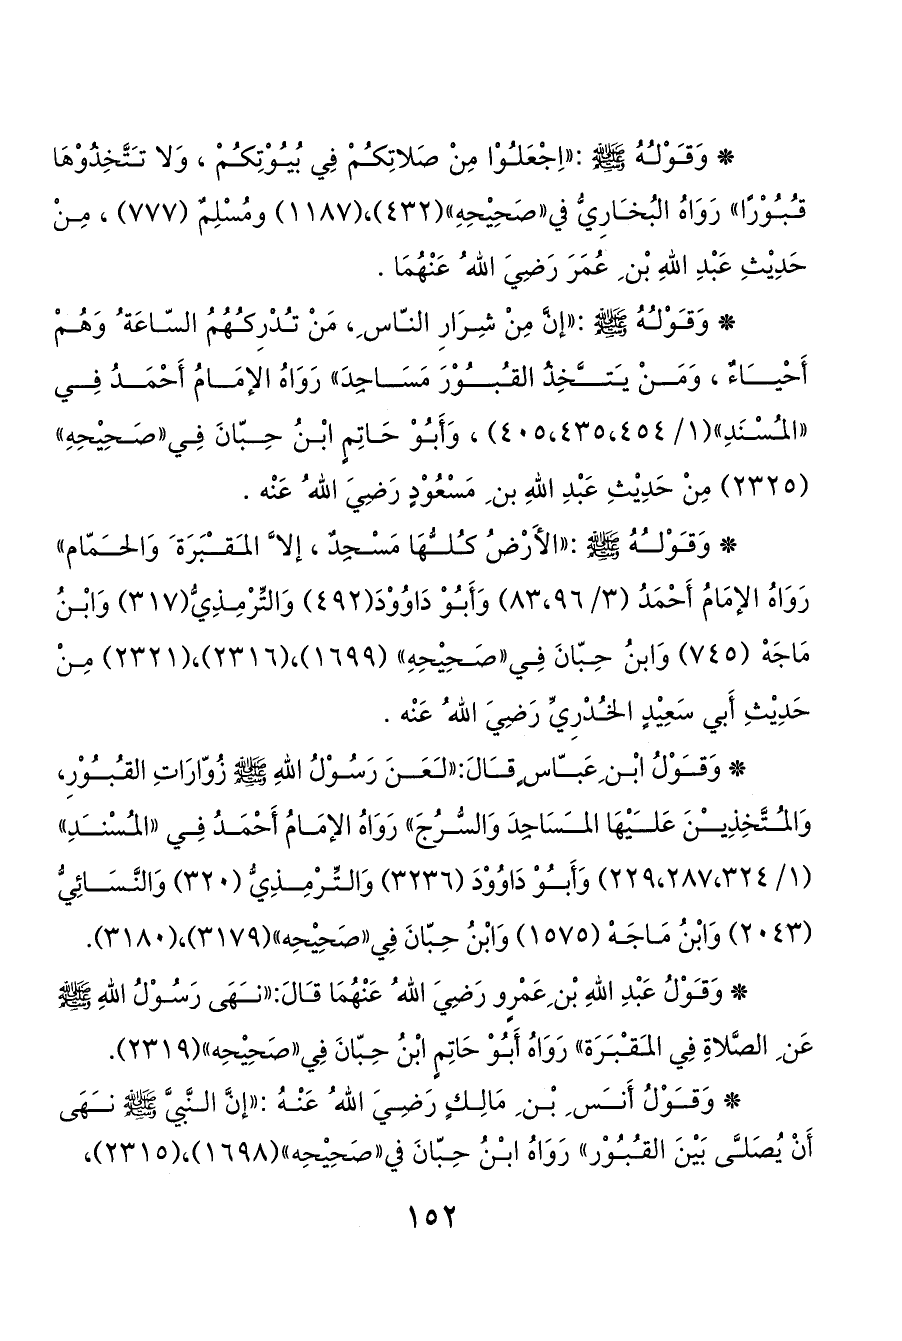 * وَقَوْلُهُ ﷺ :«اِجْعَلُوْا مِنْ صَلاتِكُمْ فِي بُيُوْتِكُمْ ، وَلا تَتَّخِذُوْهَا
قُبُوْرًا» رَوَاهُ البُخَارِيُّ في«صَحِيْحِهِ»(٤٣٢)،(١١٨٧) ومُسْلِمٌ (٧٧٧) ، مِنْ
حَدِيْثِ عَبْدِ اللهِ بْنِ عُمَرَ رَضِيَ اللهُ عَنْهُمَا .
* وَقَوْلُهُ ﷺ :«إنَّ مِنْ شِرَارِ النَّاسِ، مَنْ تُدْرِكُهُمُ السَّاعَةُ وَهُمْ
أَحْيَاءٌ ، وَمَنْ يَتَّخِذُ القُبُوْرَ مَسَاجِدَ» رَوَاهُ الإمَامُ أَحْمَدُ فِي
«المُسْنَدِ»(١/ ٤٠٥،٤٣٥،٤٥٤) ، وَأَبُوْ حَاتِمٍ ابْنُ حِبَّانَ فِي«صَحِيْحِهِ»
(٢٣٢٥) مِنْ حَدِيْثِ عَبْدِ اللهِ بنِ مَسْعُوْدٍ رَضِيَ اللهُ عَنْه .
* وَقَوْلُهُ ﷺ :«الأَرْضُ كُلُّهَا مَسْجِدٌ ، إلاَّ المَقْبَرَةَ وَالحَمَّام»
رَوَاهُ الإمَامُ أَحْمَدُ (٣/ ٨٣،٩٦) وَأَبُوْ دَاوُوْدَ(٤٩٢) وَالتِّرْمِذِيُّ(٣١٧) وَابْنُ
مَاجَهْ (٧٤٥) وَابنُ حِبَّانَ فِي«صَحِيْحِهِ» (١٦٩٩)،(٢٣١٦)،(٢٣٢١) مِنْ
حَدِيْثِ أَبي سَعِيْدٍ الخُدْرِيِّ رَضِيَ اللهُ عَنْه .
* وَقَوْلُ ابْنِ عَبَّاسٍ قَالَ:«لَعَنَ رَسُوْلُ اللهِ ﷺ زُوَّارَاتِ القُبُوْرِ،
وَالمُتَّخِذِيْنَ عَلَيْهَا المَسَاجِدَ وَالسُّرُجَ» رَوَاهُ الإمَامُ أَحْمَدُ فِي «المُسْنَدِ»
(١/ ٢٢٩،٢٨٧،٣٢٤) وَأَبُوْ دَاوُوْدَ (٣٢٣٦) وَالتِّرْمِذِيُّ (٣٢٠) وَالنَّسَائِيُّ
(٢٠٤٣) وَابْنُ مَاجَهْ (١٥٧٥) وَابْنُ حِبَّانَ فِي«صَحِيْحِه»(٣١٧٩)،(٣١٨٠).
* وَقَوْلُ عَبْدِ اللهِ بْنِ عَمْرٍو رَضِيَ اللهُ عَنْهُمَا قَالَ:«نَهَى رَسُوْلُ اللهِ ﷺ
عَنِ الصَّلاةِ فِي المَقْبَرَة» رَوَاهُ أَبُوْ حَاتِمٍ ابْنُ حِبَّانَ فِي«صَحِيْحِه»(٢٣١٩).
* وَقَوْلُ أَنَسِ بْنِ مَالِكٍ رَضِيَ اللهُ عَنْهُ :«إنَّ النَّبِيَّ ﷺ نَهَى
أَنْ يُصَلَّى بَيْنَ القُبُوْر» رَوَاهُ ابْنُ حِبَّانَ في«صَحِيْحِه»(١٦٩٨)،(٢٣١٥)،
١٥٢